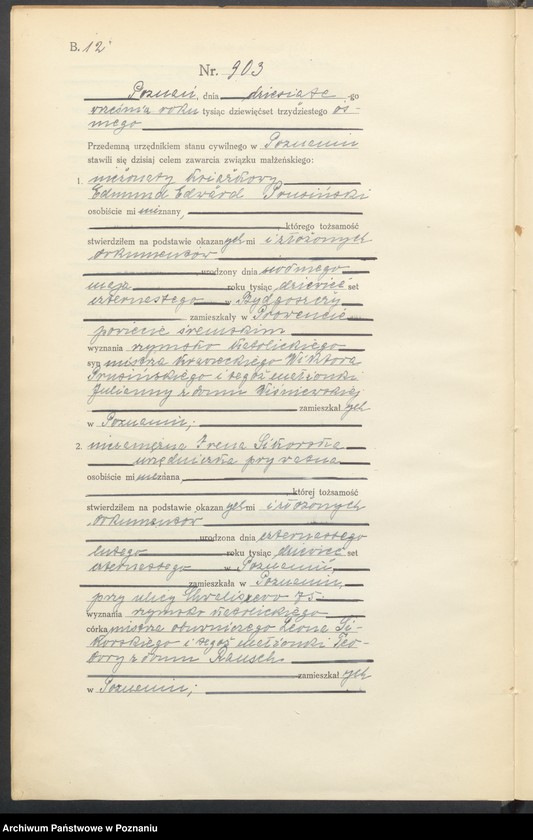 B. 12
Nr. 903
Poznań, dnia dziesiąte go
września roku tysiąc dziewięćset trzydziestego ós-
mego
Przedemną urzędnikiem stanu cywilnego w Poznaniu
stawili się dzisiaj celem zawarcia związku małżeńskiego:
1. nieżonaty książkowy
Edmund Edward Prusiński
osobiście mi nieznany,
, którego tożsamość
stwierdziłem na podstawie okazanych mi i złożonych
dokumentów
urodzony dnia siódmego
maja roku tysiąc dziewięć set
czternastego w Bydgoszczy
zamieszkały w
powiecie śremskim
wyznania rzymsko katolickiego
syn mistrza krawieckiego Wiktora
Prusińskiego i tegoż małżonki
Julianny z domu Wiśniewskiej
zamieszkał ych
w Poznaniu;
2. niezamężna Irena Sikorska
urzędniczka prywatna
osobiście mi nieznana
, której tożsamość
stwierdziłem na podstawie okazanych mi i złożonych
dokumentów
urodzona dnia czternastego
lutego roku tysiąc dziewięć set
czternastego w Poznaniu,
zamieszkała w Poznaniu,
przy ulicy Chwaliszewo 75
wyznania rzymsko katolickiego
córka mistrza obuwniczego Leona Si-
korskiego i tegoż małżonki Teo-
dory z domu Rausch
zamieszkał ych
w Poznaniu;
Archiwum Państwowe w Poznaniu